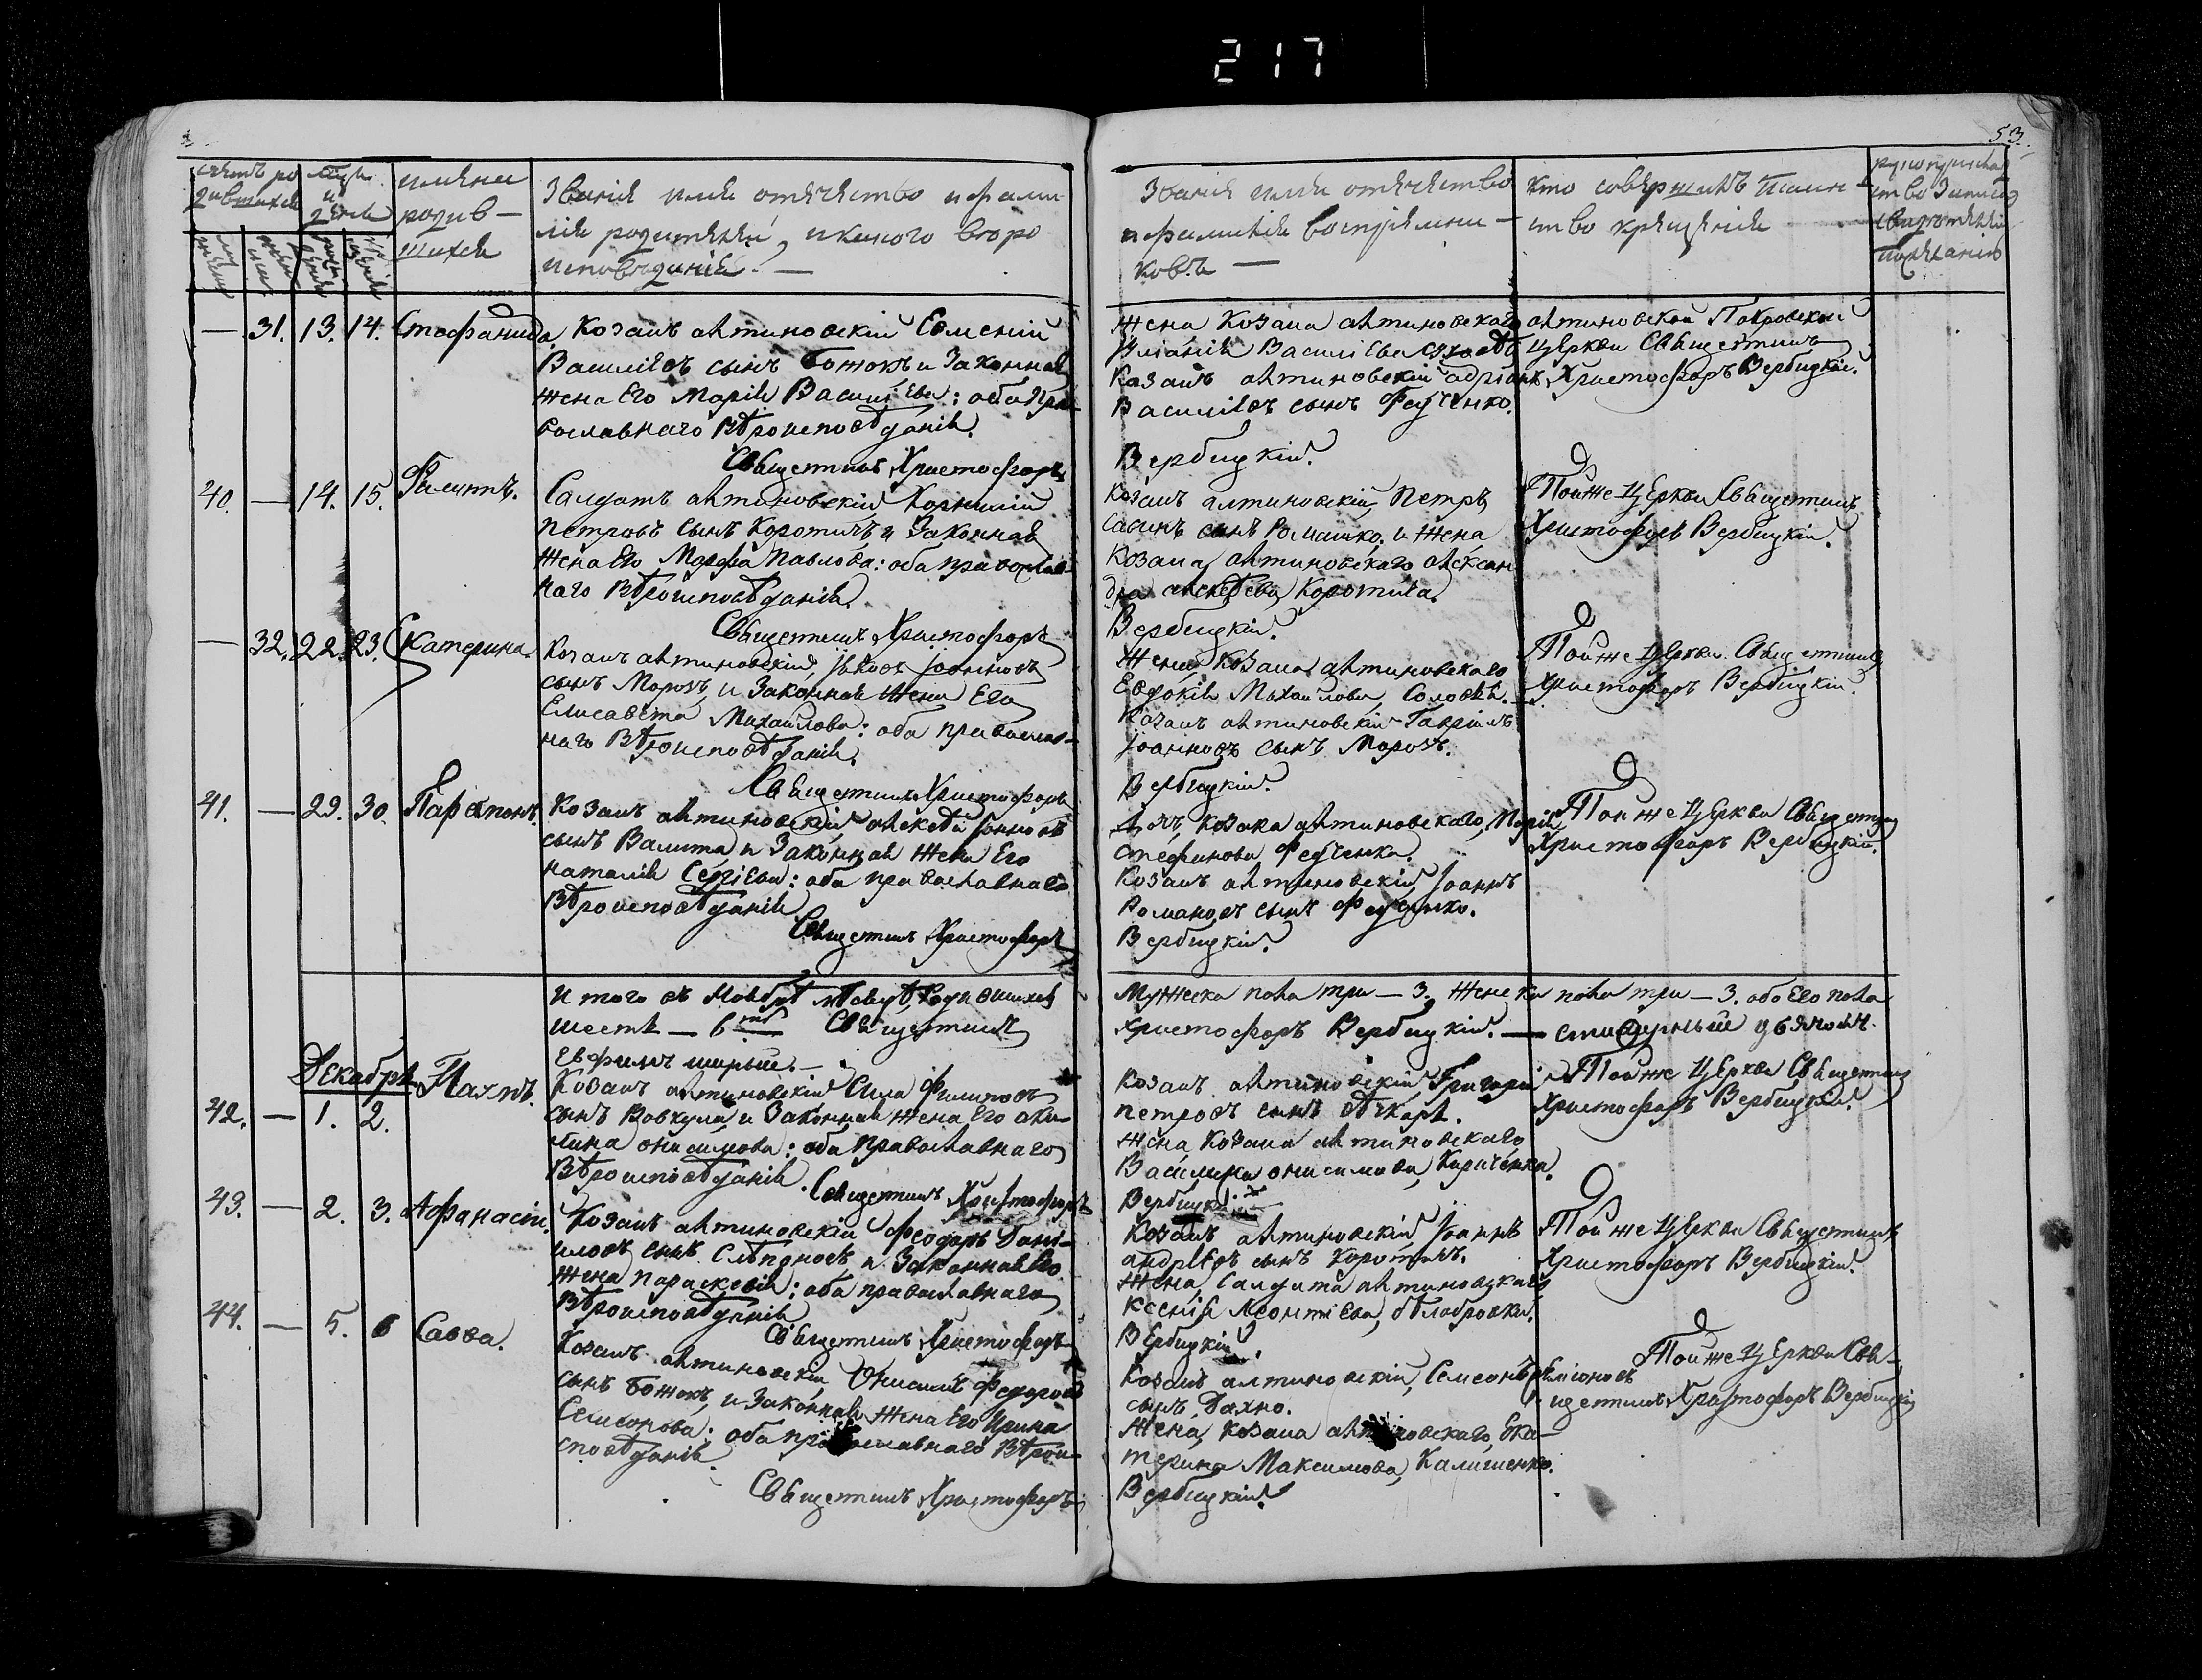 217
53.
счетъ ро
дившихся
имена
родив-
шихся
Званія имя отчество и фами-
лія родителей, и какого веро
исповеданія. —
Званія имя отчество
и фамилія воспріемни-
ковъ —
кто совершилъ таин-
ство крещенія
— 31. 13. 14. Стефанида.
Козакъ алтиновскій Евменій
Василіевъ сынъ Божокъ и Законная
жена Его Марія Василіева: оба пра-
вославнаго вѣроисповѣданія.
Священникъ Христофоръ
Жена Козака алтиновскаго
Василіева
Козакъ алтиновскій Адріанъ
Василіевъ сынъ Федченко.
Вербицкій.
алтиновской Покровской
Церкви Священникъ
Христофоръ Вербицкій.
40. — 14. 15. Филиппъ.
Салдатъ алтиновскій Корнилій
Петровъ сынъ Коротичъ и Законная
жена Его Марфа Павлова: оба православ-
наго вѣроисповѣданія.
Священникъ Христофоръ
Козакъ алтиновскій Петръ
Савинъ сынъ Ромашко. и жена
Козака алтиновскаго Алексан-
дра Алексѣева Коротича.
Вербицкій.
Тойже Церкви Священникъ
Христофоръ Вербицкій.
— 32. 22. 23. Екатерина.
Козакъ алтиновскій, Іяковъ Іоанновъ
сынъ Морозъ, и Законная жена Его
Елисавета Михайлова: оба православ-
наго вѣроисповѣданія.
Священникъ Христофоръ
Жена Козака алтиновскаго
Евдокія Михайлова,
Козакъ алтиновскій Гавріилъ
Іоанновъ сынъ Морозъ.
Вербицкій.
Тойже Церкви Священникъ
Христофоръ Вербицкій.
41. — 29. 30. Парѳенъ.
Козакъ алтиновскій Алексѣй Іоанновъ
сынъ Валита и Законная жена Его
Наталія Сергіева: оба православнаго
вѣроисповѣданія
Священникъ Христофоръ
Дочь Козака алтиновскаго, Марія
Стефанова Федченка.
Козакъ алтиновскій Іоаннъ
Романовъ сынъ Федченко.
Вербицкій.
Тойже Церкви Священникъ
Христофоръ Вербицкій.
Итого въ Ноябрѣ мѣсяцѣ родившихся
шесть — 6. Священникъ
Мужеска пола три — 3. женска пола три — 3. обоего пола
Христофоръ Вербицкій. —
Декабря
42. — 1. 2. Наумъ.
Козакъ алтиновскій Сила Филиповъ
сынъ Вовкула и Законная жена Его Аку-
лина Онисимова: оба православнаго
вѣроисповѣданія.
Священникъ Христофоръ
Козакъ алтиновскій Григорій
Петровъ сынъ
жена Козака алтиновскаго
Василиса Онисимова Кириченка.
Вербицкій.
Тойже Церкви Священникъ
Христофоръ Вербицкій.
43. — 2. 3. Афанасій.
Козакъ алтиновскій Феодоръ Дани-
иловъ сынъ Слѣпоносъ и Законная Его
жена Параскевія: оба православнаго
вѣроисповѣданія
Священникъ Христофоръ
Козакъ алтиновскій Іоаннъ
Андреевъ сынъ Коротичъ.
жена Салдата алтиновскаго
Ксенія Леонтіева, Бѣлобровка.
Вербицкій.
Тойже Церкви Священникъ
Христофоръ Вербицкій.
44. — 5. 6 Савва.
Козакъ алтиновскій Онисимъ Федоровъ
сынъ Божокъ, и Законная жена Его Ирина
Семенова: оба православнаго вѣрои-
сповѣданія.
Священникъ Христофоръ
Козакъ алтиновскій, Семеонъ Семіоновъ
сынъ Дахно.
Жена, Козака алтиновскаго, Ека-
терина Максимова, Калишенко.
Вербицкій.
Тойже Церкви Свя-
щенникъ Христофоръ Вербицкій